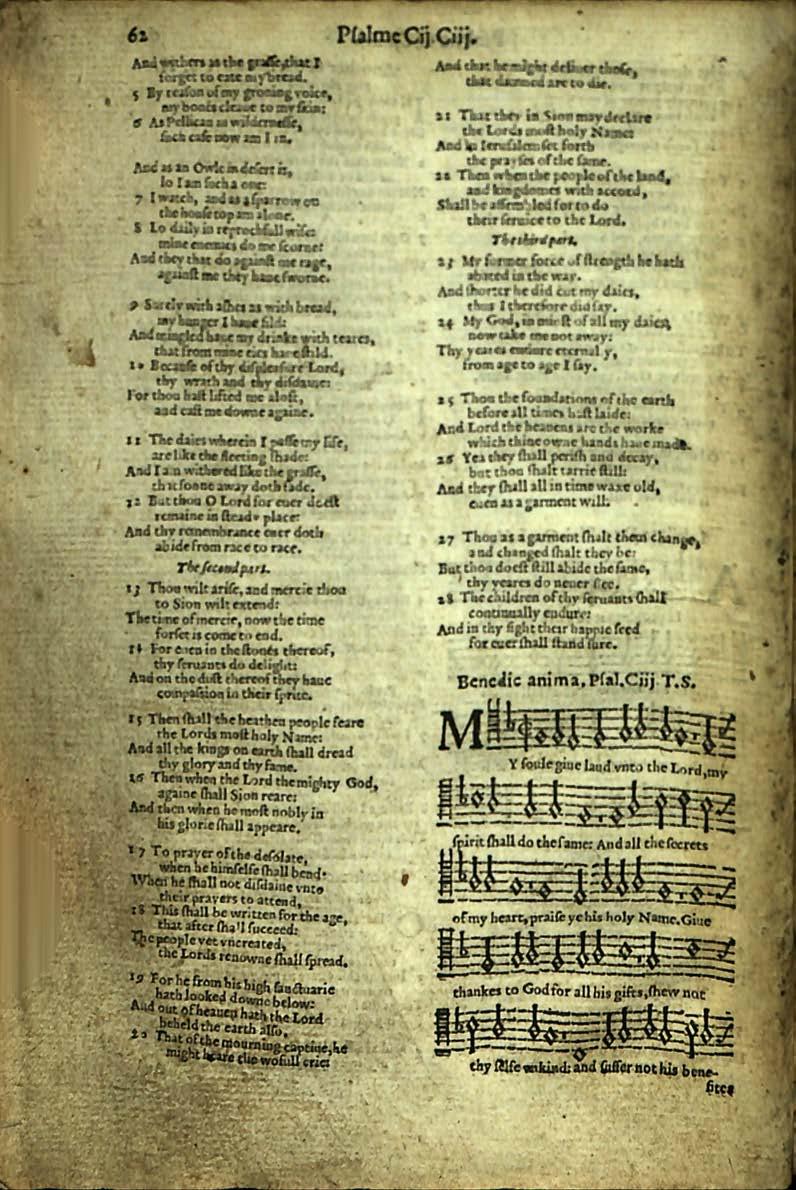 62
Psalme Cij. Ciij.
And withers as the grasse, that I
forget to eate my bread.
5 By reason of my groning voice,
my bones cleaue to my skin:
6 As Pellican in wildernesse,
such case now am I in.
And as an Owle in desert is,
lo I am such a one:
7 I watch, and as a sparrow on
the house top am alone.
8 Lo daily in reprochfull wise
mine enemies do me scorne:
And they that do against me rage,
against me they haue sworne.
9 Surely with ashes as with bread,
my hunger I haue fild:
And mingled haue my drinke with teares,
that from mine eies haue stild.
10 Because of thy displeasure Lord,
thy wrath and thy disdaine:
For thou hast lifted me aloft,
and cast me downe againe.
11 The daies wherein I passe my life,
are like the fleeting shade:
And I am withered like the grasse,
that soone away doth fade.
12 But thou O Lord for euer doest
remaine in steady place:
And thy remembrance euer doth
abide from race to race.
The second part.
13 Thou wilt arise, and mercie thou
to Sion wilt extend:
The time of mercie, now the time
forset is come to end.
14 For euen in the stones thereof,
thy seruants do delight:
And on the dust thereof they haue
compassion in their sprite.
15 Then shall the heathen people feare
the Lords most holy Name:
And all the kings on earth shall dread
thy glory and thy fame.
16 Then when the Lord the mighty God,
againe shall Sion reare:
And then when he most nobly in
his glorie shall appeare.
17 To prayer of the desolate,
when he himselfe shall bend:
When he shall not disdaine vnto
their prayers to attend,
18 This shall be written for the age,
that after shall succeed:
The people yet vncreated,
the Lords renowne shall spread.
19 For he from his high sanctuarie
hath looked downe below:
And out of heauen hath the Lord
beheld the earth also,
20 That of the mourning captiue, he
might heare the wofull crie:
And that he might deliuer those,
that damned are to die.
21 That they in Sion may declare
the Lords most holy Name:
And in Ierusalem set forth
the prayses of the same.
22 Then when the people of the land,
and kingdomes with accord,
Shall be assembled for to do
their seruice to the Lord.
The third part.
23 My former force of strength he hath
abated in the way.
And shorter he did cut my daies,
thus I therefore did say.
24 My God, in midst of all my daies,
now take me not away:
Thy yeares endure eternally,
from age to age I say.
25 Thou the foundations of the earth
before all times hast laide:
And Lord the heauens are the worke
which thine owne hands haue made.
26 Yea they shall perish and decay,
but thou shalt tarrie still:
And they shall all in time waxe old,
euen as a garment will.
27 Thou as a garment shalt them change,
and changed shalt they be:
But thou doest still abide the same,
thy yeares do neuer flee.
28 The children of thy seruants shall
continually endure:
And in thy sight their happie seed
for euer shall stand sure.
Benedic anima. Psal. Ciij. T. S.
MY soule giue laud vnto the Lord, my
spirit shall do the same: And all the secrets
of my heart, praise ye his holy Name. Giue
thankes to God for all his gifts, shew not
thy selfe vnkind: and suffer not his bene-
fites